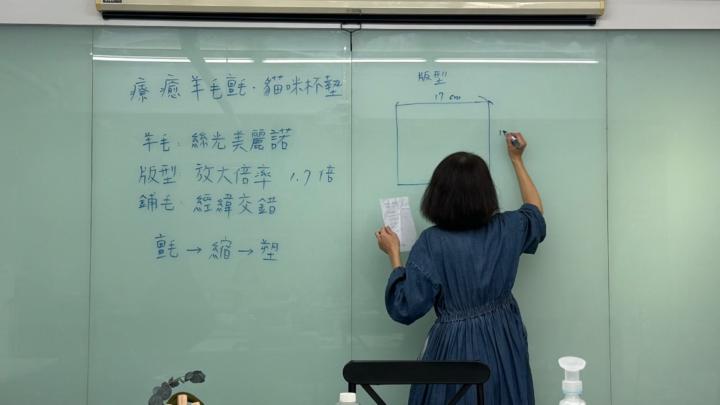 療癒羊毛氈·貓咪杯墊
羊毛：絲光美麗諾
版型 放大倍率 1.7倍
鋪毛：經緯交錯
氈→縮→塑
版型
17 cm